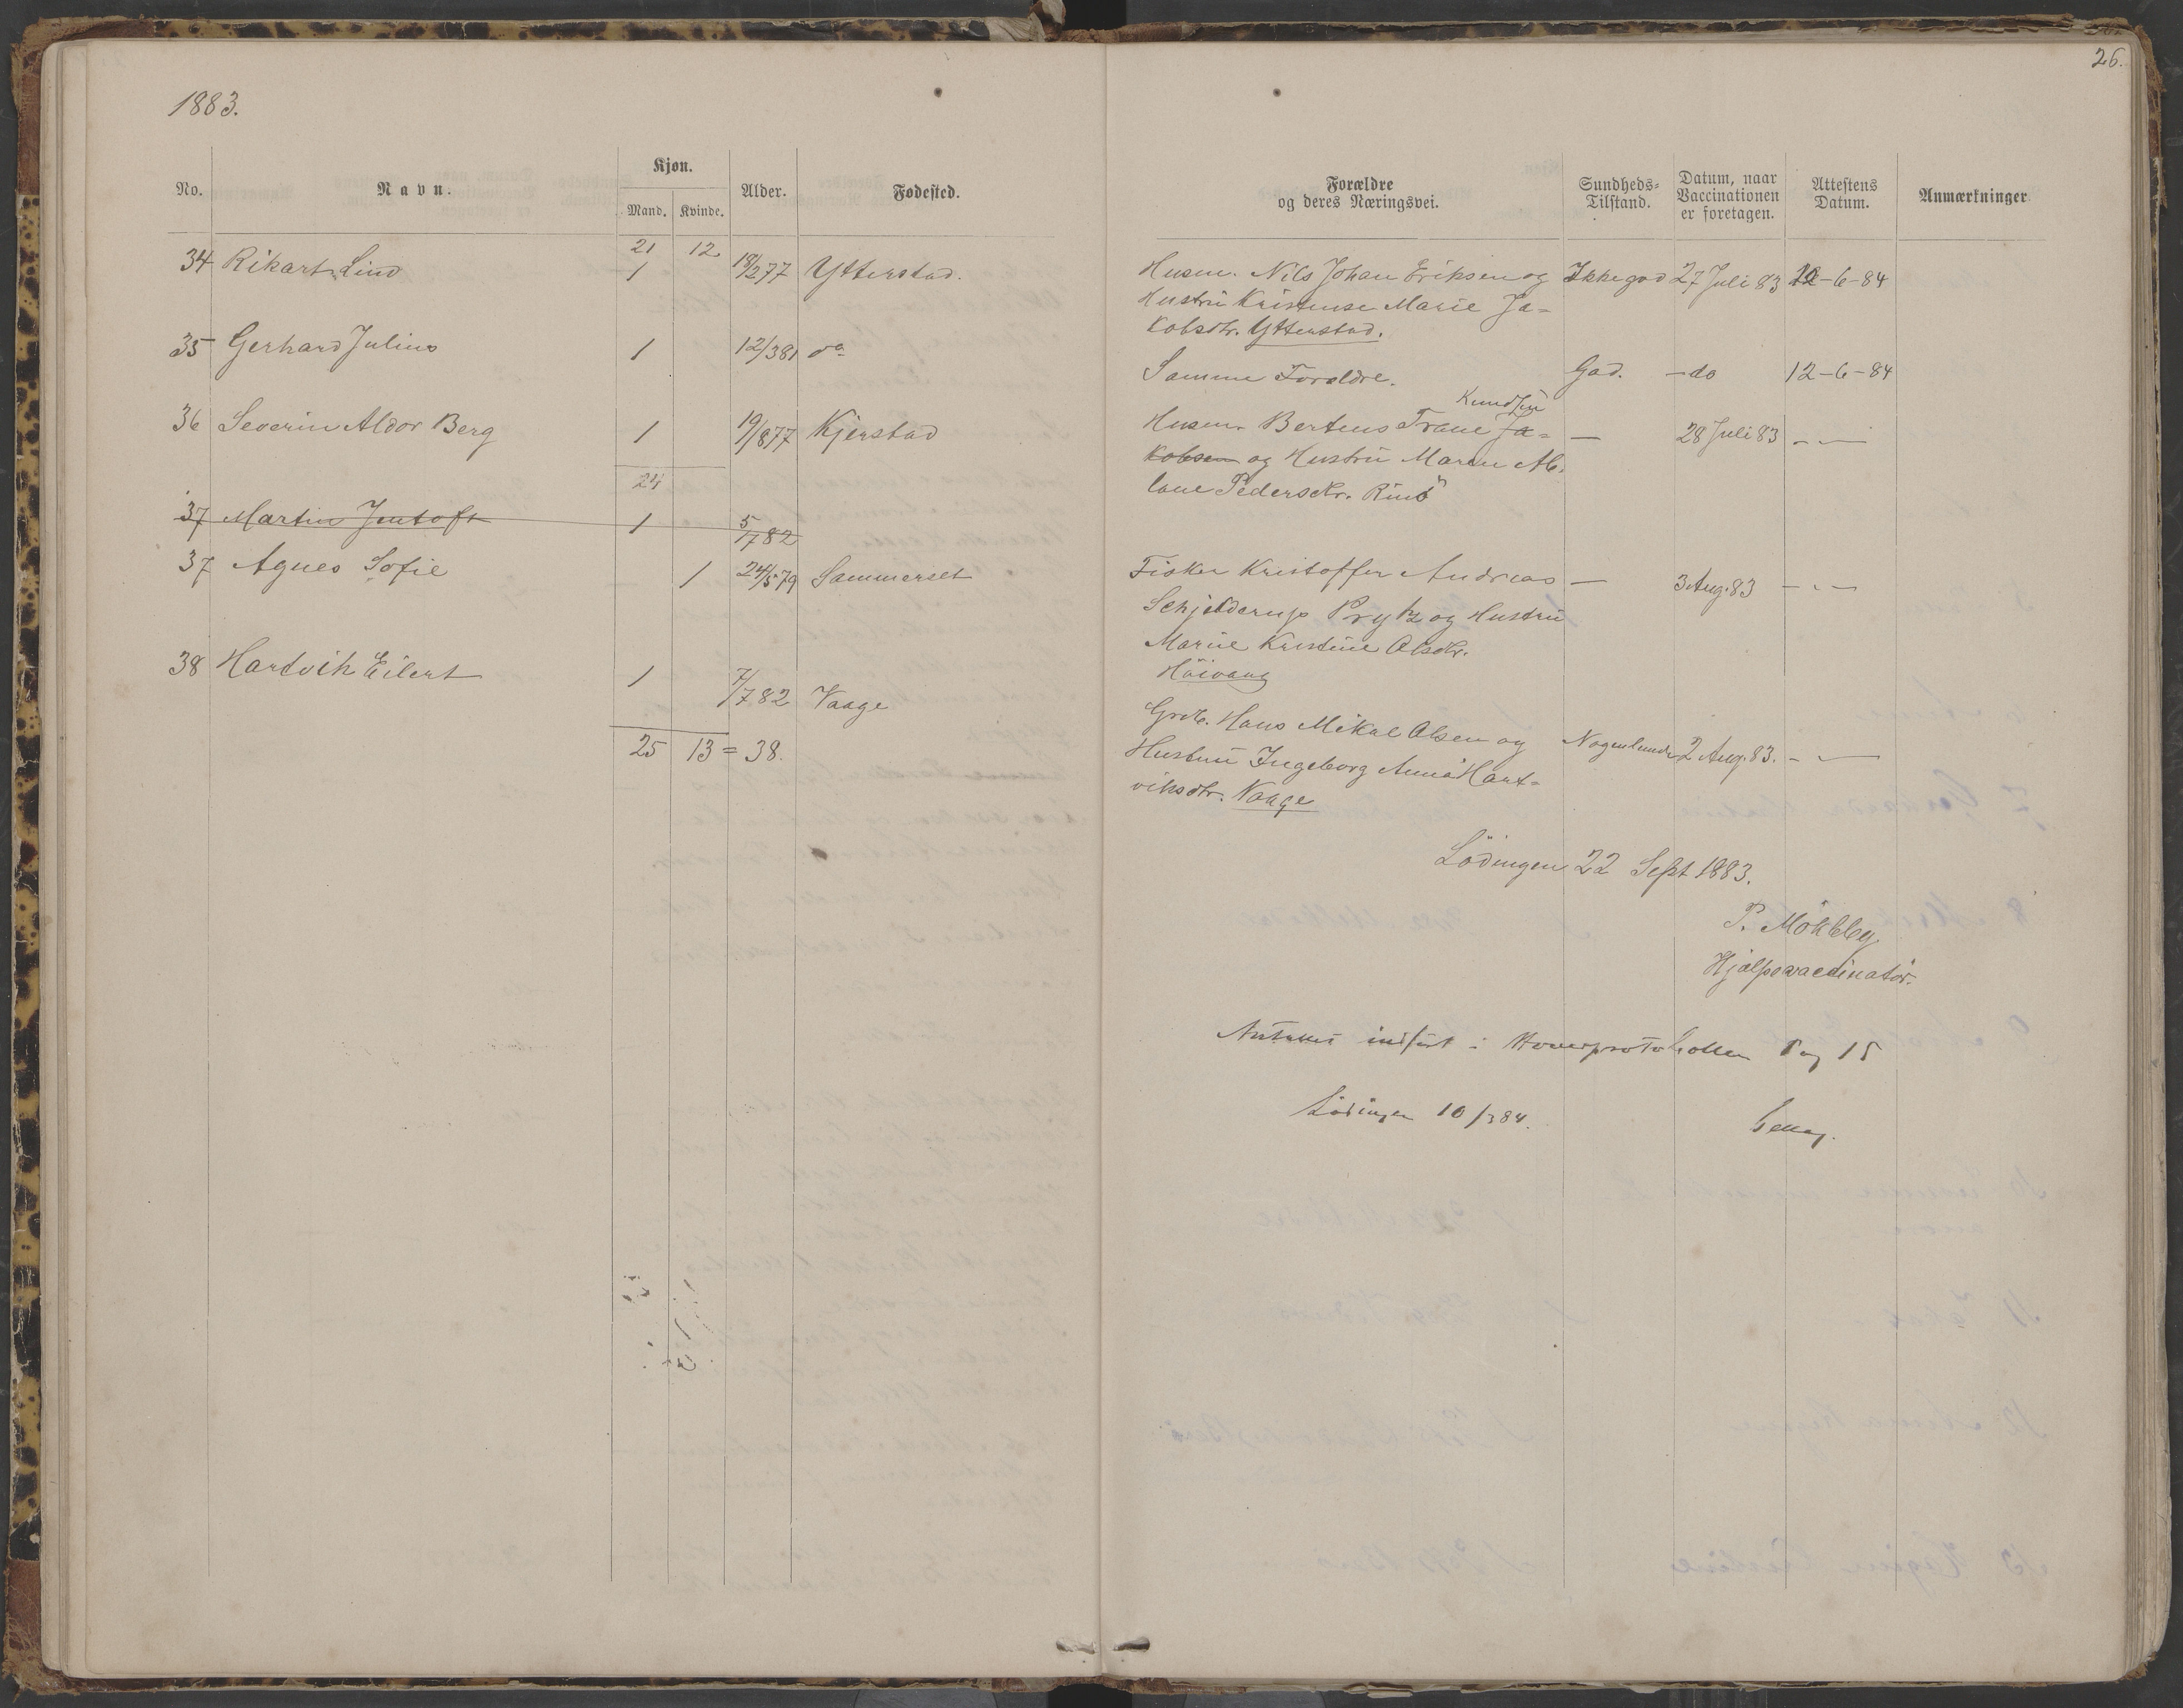 26.
1883.
No. Navn. Kjøn. Mand. Kvinde. Alder. Fødested.
Forældre og deres Næringsvei. Sundheds-Tilstand. Datum, naar Vaccinationen er foretagen. Attestens Datum. Anmærkninger
21 12
34 Rikart Lind 1 18/2 77 Ytterstad.
Husm. Nils Johan Eriksen og Ikke god 27 Juli 83 12-6-84
Hustru Kristense Marie Ja-
kobsdtr. Ytterstad.
35 Gerhard Julius 1 12/3 81 do
Samme Forældre. God. -do 12-6-84
36 Severin Aldor Berg 1 19/8 77 Kjerstad
Knudsen
Husm. Berteus Trane Ja- — 28 Juli 83 - —
kobsen og Hustru Maren Ab.
lone Pedersdtr. Rinö
24
37 Martin Jentoft 1 5/7 82
37 Agnes Sofie 1 24/5 79 Sammerset
Fisker Kristoffer Andreas — 3 Aug. 83 - - —
Schjelderup Prytz og Hustru
Marie Kristine Olsdtr.
Höivang
38 Hartvik Eilert 1 7/7 82 Vaage
Grdb. Hans Mikal Olsen og Nogenlunde 2 Aug. 83. - —
Hustru Ingeborg Anna Hart-
viksdtr. Vaage
25 13 = 38.
Lödingen 22 Sept 1883.
P. Mökleby
Hjælpevaccinatör.
indført i Hovedprotokollen Pag 15
Lödingen 10/3 84.